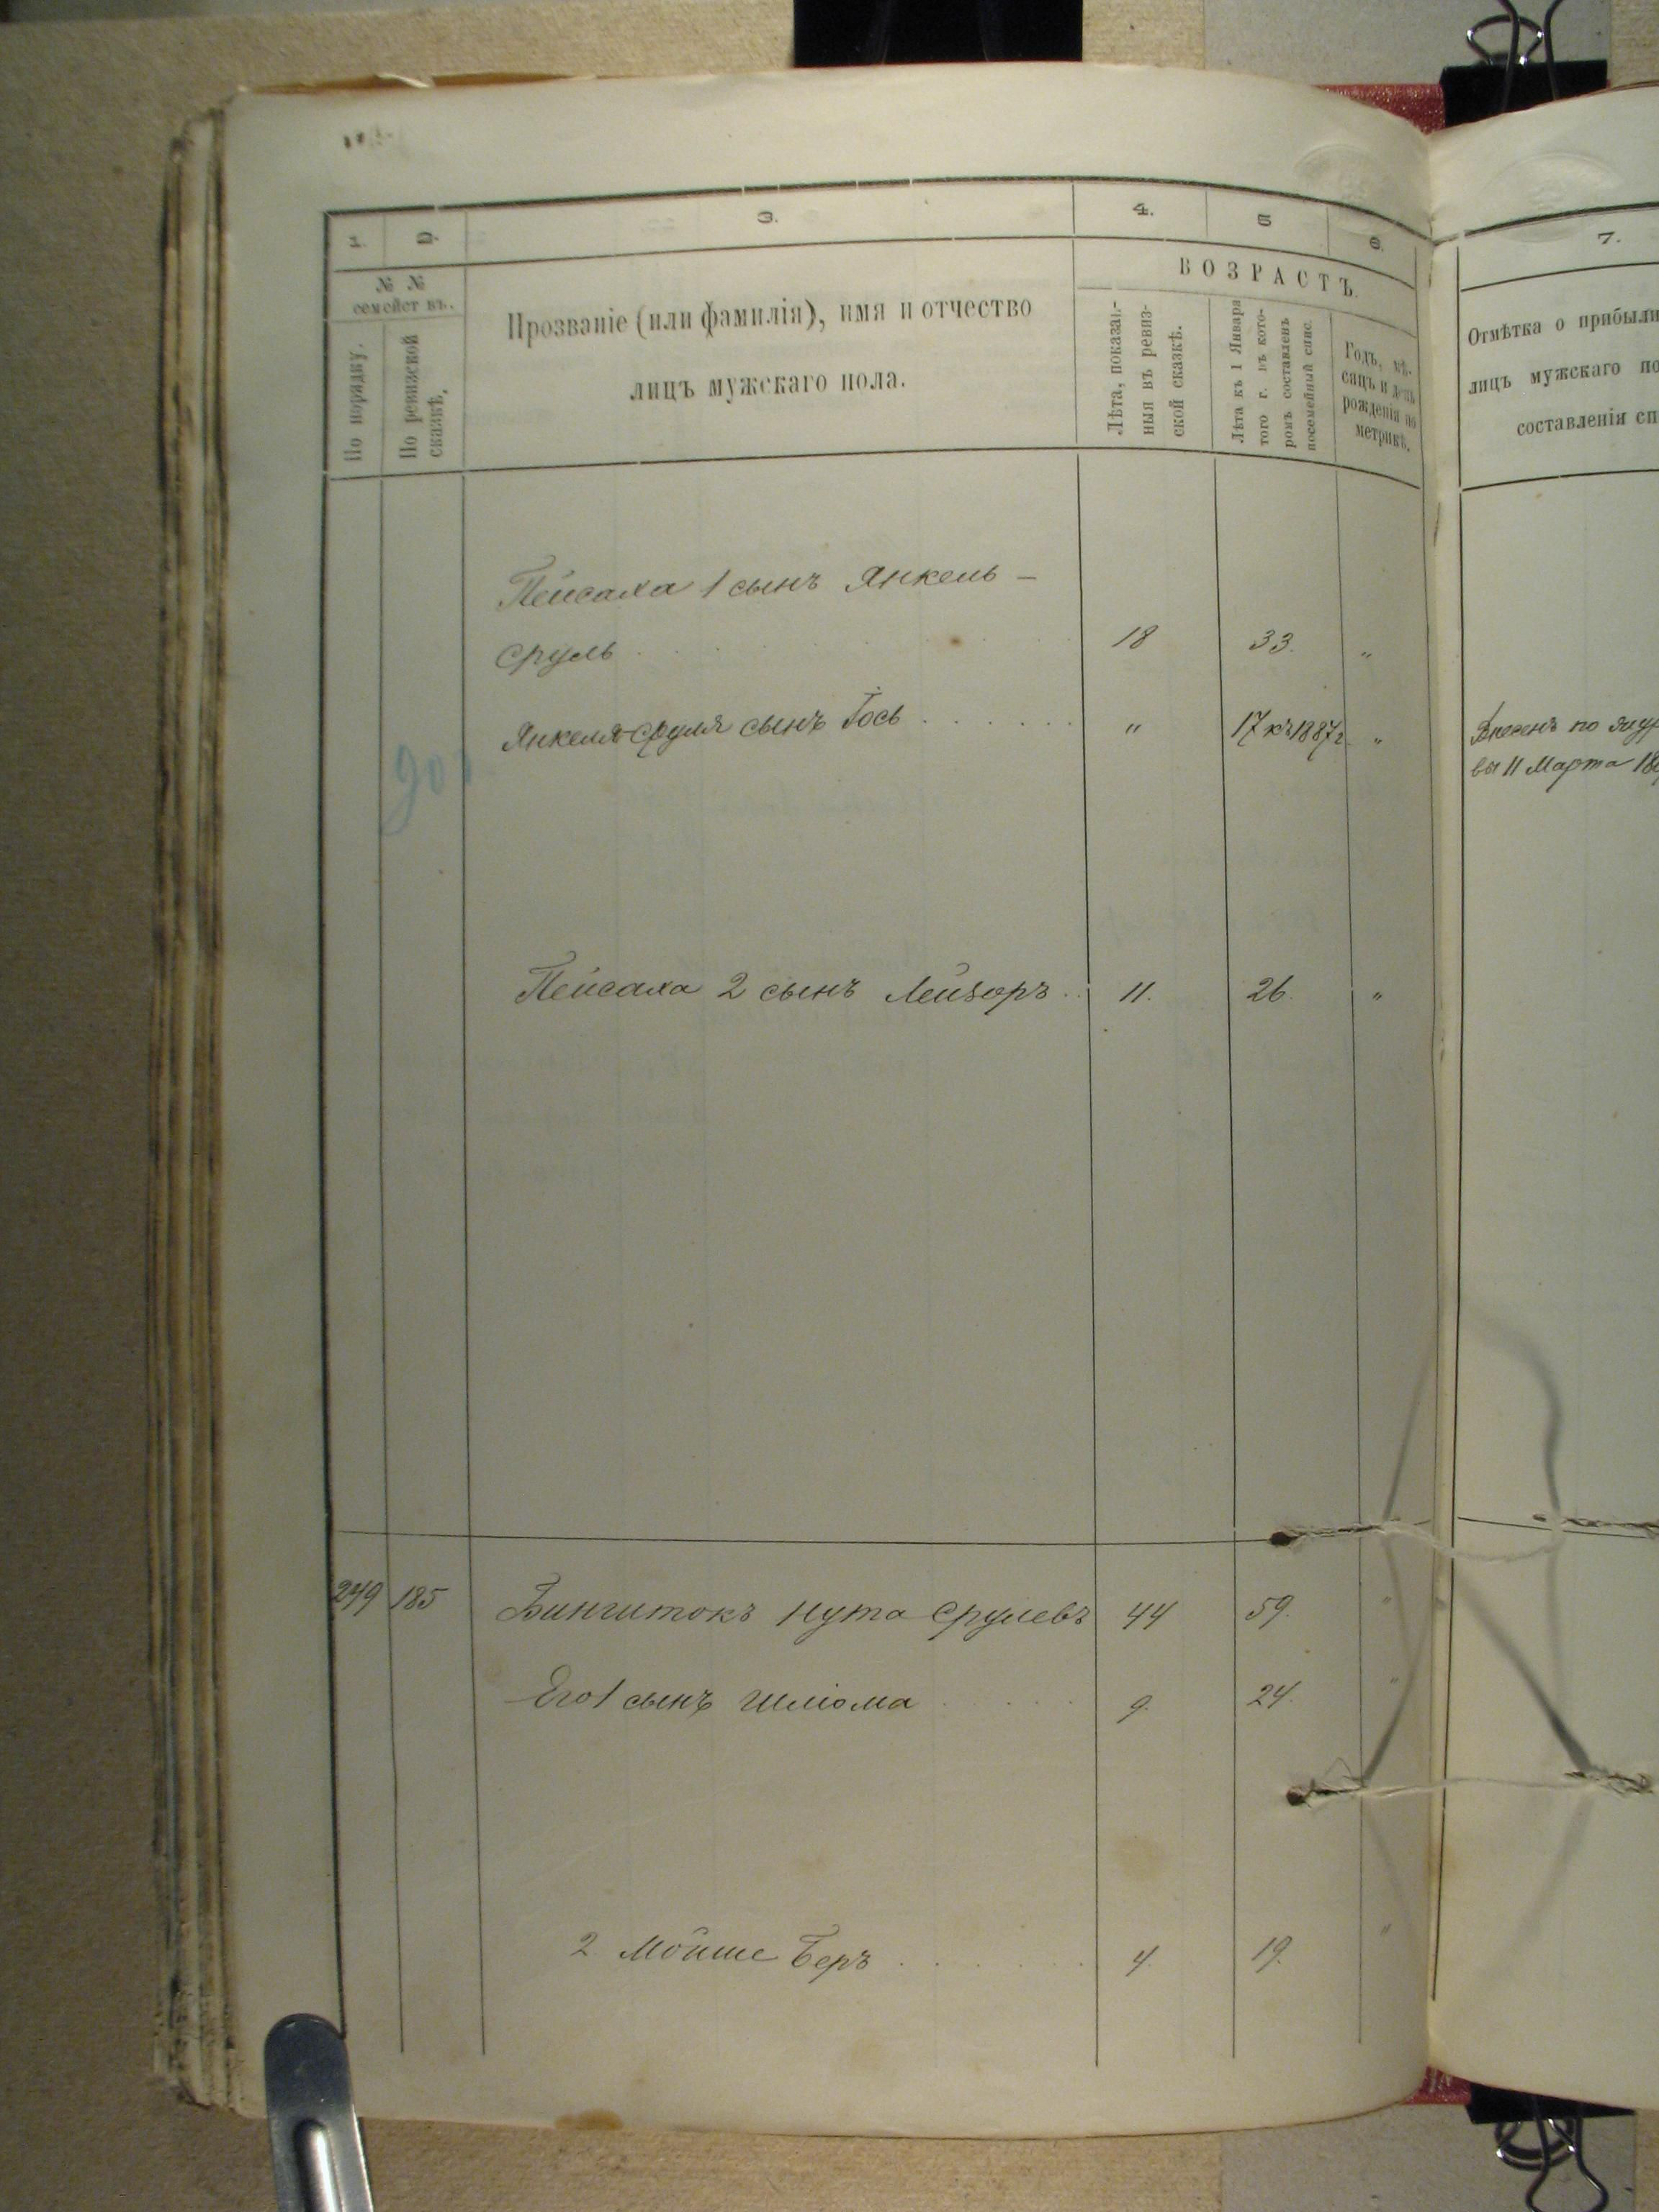 1. 2. 3. 4. 5 6. 7.
№ № семействъ.
По порядку.
По ревизской сказкѣ.
Прозваніе (или фамилія), имя и отчество
лицъ мужскаго пола.
ВОЗРАСТЪ.
Лѣта, показан-
ныя въ ревиз-
ской сказкѣ.
Лѣта къ 1 Января
того г. въ кото-
ромъ составленъ
посемейный спис.
Годъ, мѣ-
сяцъ и день
рожденія по
метрикѣ.
Отмѣтка о прибыли
лицъ мужскаго по
составленія сп
Пейсаха 1 сынъ Янкель –
Сруль 18 33. „
Янкеля-Сруля сынъ Іось „ 17 къ 1887 г. „
Внесенъ по
вы 11 Марта 18
Пейсаха 2 сынъ Лейзоръ 11. 26. „
249 185 Бингитокъ Нута Срулевъ 44 59. „
Его 1 сынъ Шліома 9. 24. „
2. Мойше Беръ 4. 19. „